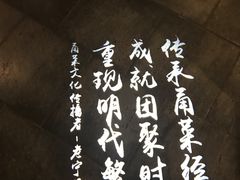 传承甬菜经
成就团聚时
重现明代繁
甬菜文化传播者－老宁